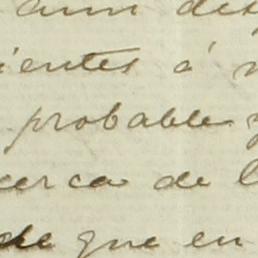 aun des
ientes á
probable y
cerca de l
de que en